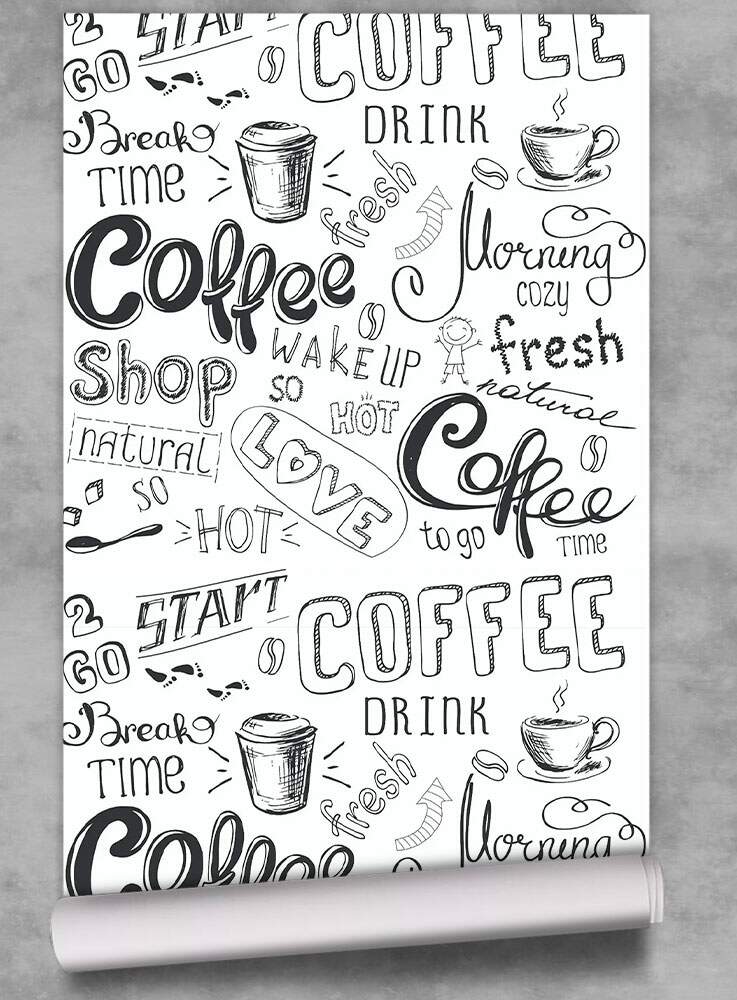 2 START
GO
COFFEE
DRINK
Break
TIME
fresh
Morning
cozy
Coffee
Shop
WAKE UP
SO
HOT
fresh
natural
natural
SO
HOT
LOVE
Coffee
to go
TIME
2 START
GO
COFFEE
DRINK
Break
TIME
fresh
Morning
Coffee